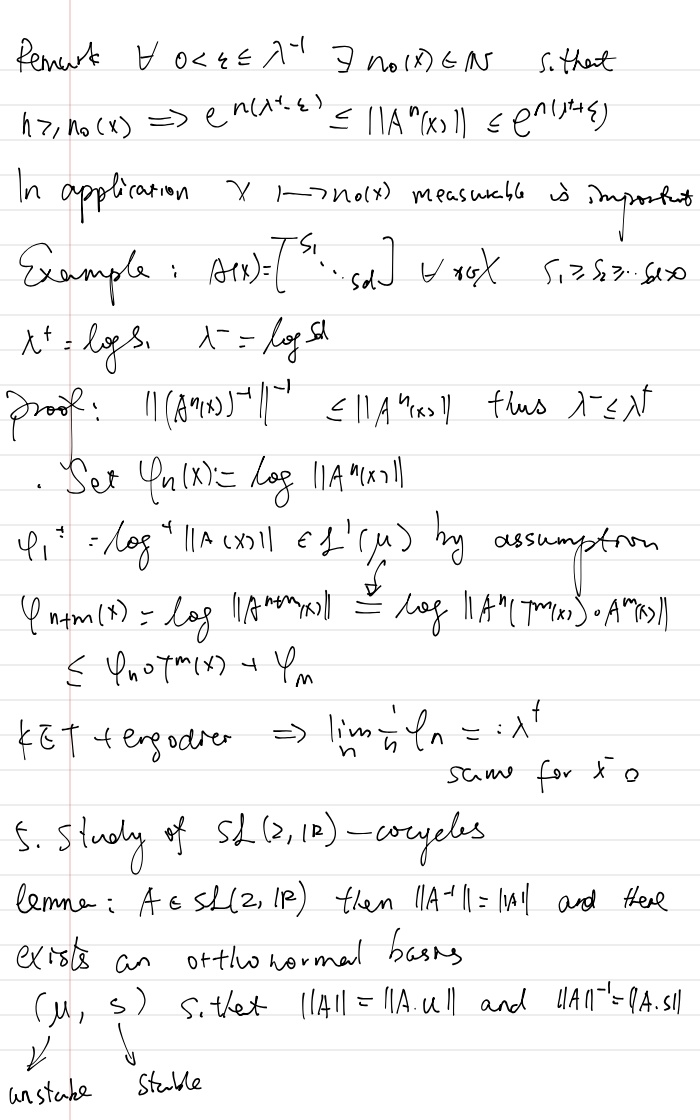 Remark ∀ 0 < ε ≤ λ⁻¹ ∃ n₀(x) ∈ ℕ s.that
n ≥ n₀(x) => e^{n(λ⁺-ε)} ≤ ||Aⁿ(x)|| ≤ e^{n(λ⁺+ε)}
In application x ↦ n₀(x) measurable is important
Example : A(x) = [s₁ ⋱ sd] ∀ x∈X s₁ ≥ s₂ ≥ ... sd > 0
λ⁺ = log s₁ λ⁻ = log sd
proof : ||(Aⁿ(x))⁻¹||⁻¹ ≤ ||Aⁿ(x)|| thus λ⁻ ≤ λ⁺
. Set φn(x) = log ||Aⁿ(x)||
φ₁⁺ = log⁺ ||A(x)|| ∈ L¹(μ) by assumption
φn+m(x) = log ||A^{n+m}(x)|| = log ||Aⁿ(T^m(x)) ∘ A^m(x)||
≤ φn ∘ T^m(x) + φm
KET + => lim_n 1/n φn = : λ⁺
same for λ⁻ □
5. Study of SL(2, ℝ) – cocycles
lemme : A ∈ SL(2, ℝ) then ||A⁻¹|| = ||A|| and there
exists an orthonormal basis
(u, s) s.that ||A|| = ||A.u|| and ||A||⁻¹ = ||A.s||
unstable stable